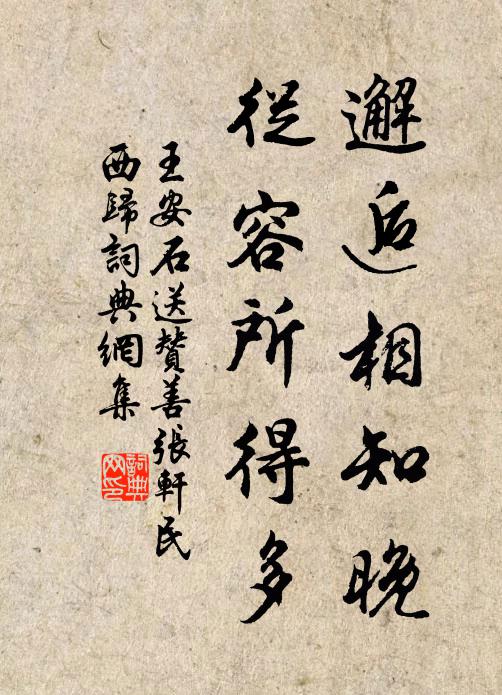 邂逅相知晚
從容所得多
王安石送贊善張軒民
西歸詞典網集
詞典網印